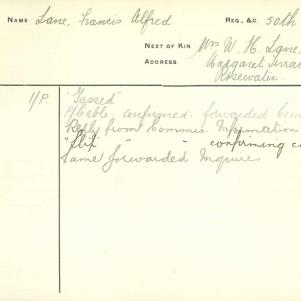 NAME Lane, Francis Alfred REG., &C. 50th
NEXT OF KIN Mrs W. H. Lane
ADDRESS Margaret Terrac
Rosewater.
1/P. "Gassed"
P/Cable, confirmed. forwarded Com
Reply from Commis. Information
" " confirming ca
Same forwarded Inquirer